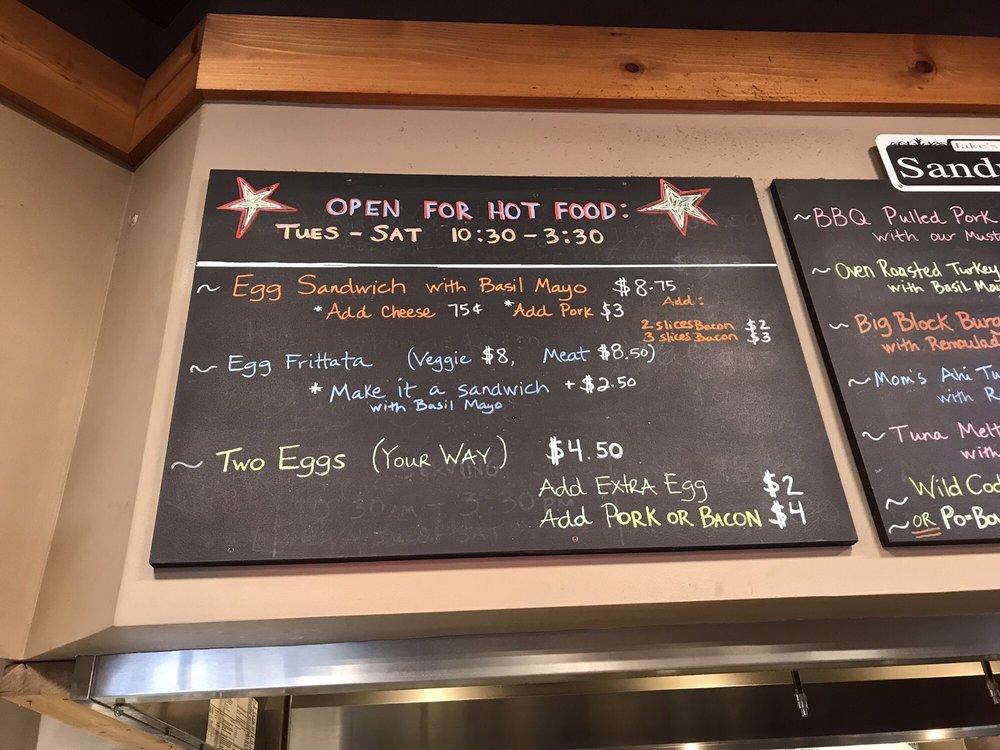 OPEN FOR HOT FOOD:
TUES - SAT 10:30 - 3:30
~ Egg Sandwich with Basil Mayo $8.75
*Add Cheese 75¢ *Add Pork $3
Add:
2 slices Bacon $2
3 slices Bacon $3
~ Egg Frittata (Veggie $8, Meat $8.50)
* Make it a sandwich + $2.50
with Basil Mayo
~ Two Eggs (Your Way) $4.50
Add Extra Egg $2
Add Pork or Bacon $4
Jake's
Sand
~BBQ Pulled Pork
with our Must
~Oven Roasted Turkey
with Basil Ma
~Big Block Burg
with Remoulad
~Mom's Ahi Tu
with R
~Tuna Melt
with
~Wild Cod
~OR Po-Bo